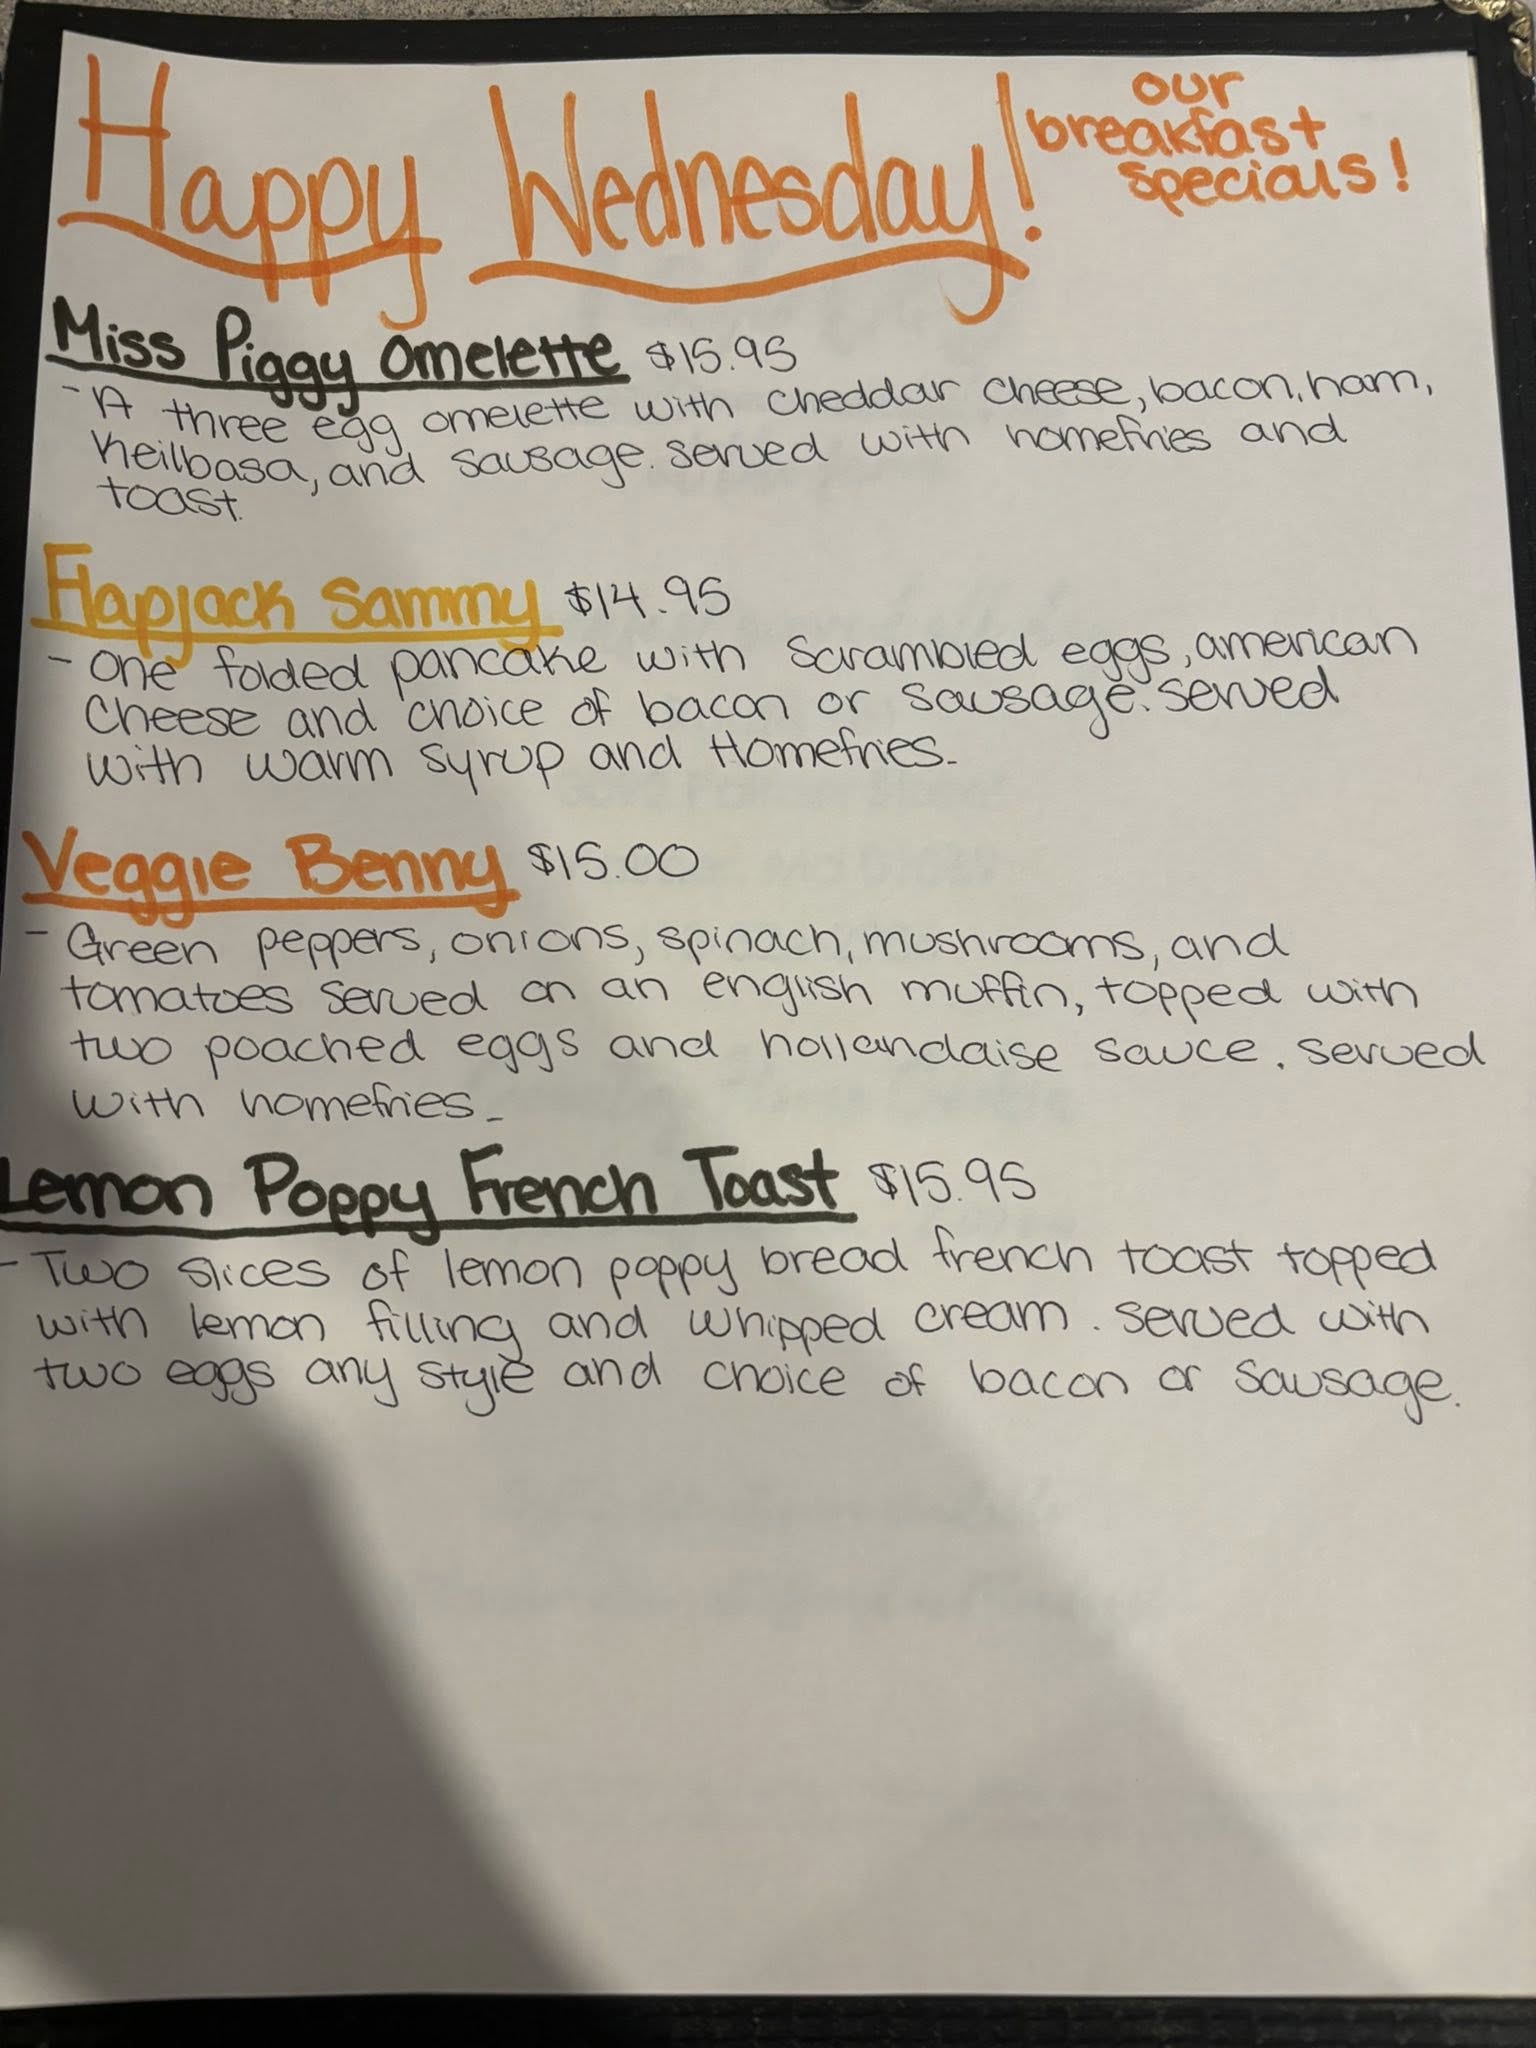 Happy Wednesday!
our
breakfast
specials!
Miss Piggy Omelette $15.95
- A three egg omelette with cheddar cheese, bacon, ham,
Keilbasa, and sausage. Served with homefries and
toast.
Flapjack Sammy $14.95
- One folded pancake with scrambled eggs, american
cheese and choice of bacon or sausage. Served
with warm syrup and Homefries.
Veggie Benny $15.00
- Green peppers, onions, spinach, mushrooms, and
tomatoes served on an english muffin, topped with
two poached eggs and hollandaise sauce. Served
with homefries.
Lemon Poppy French Toast $15.95
- Two slices of lemon poppy bread french toast topped
with lemon filling and whipped cream. Served with
two eggs any style and choice of bacon or sausage.